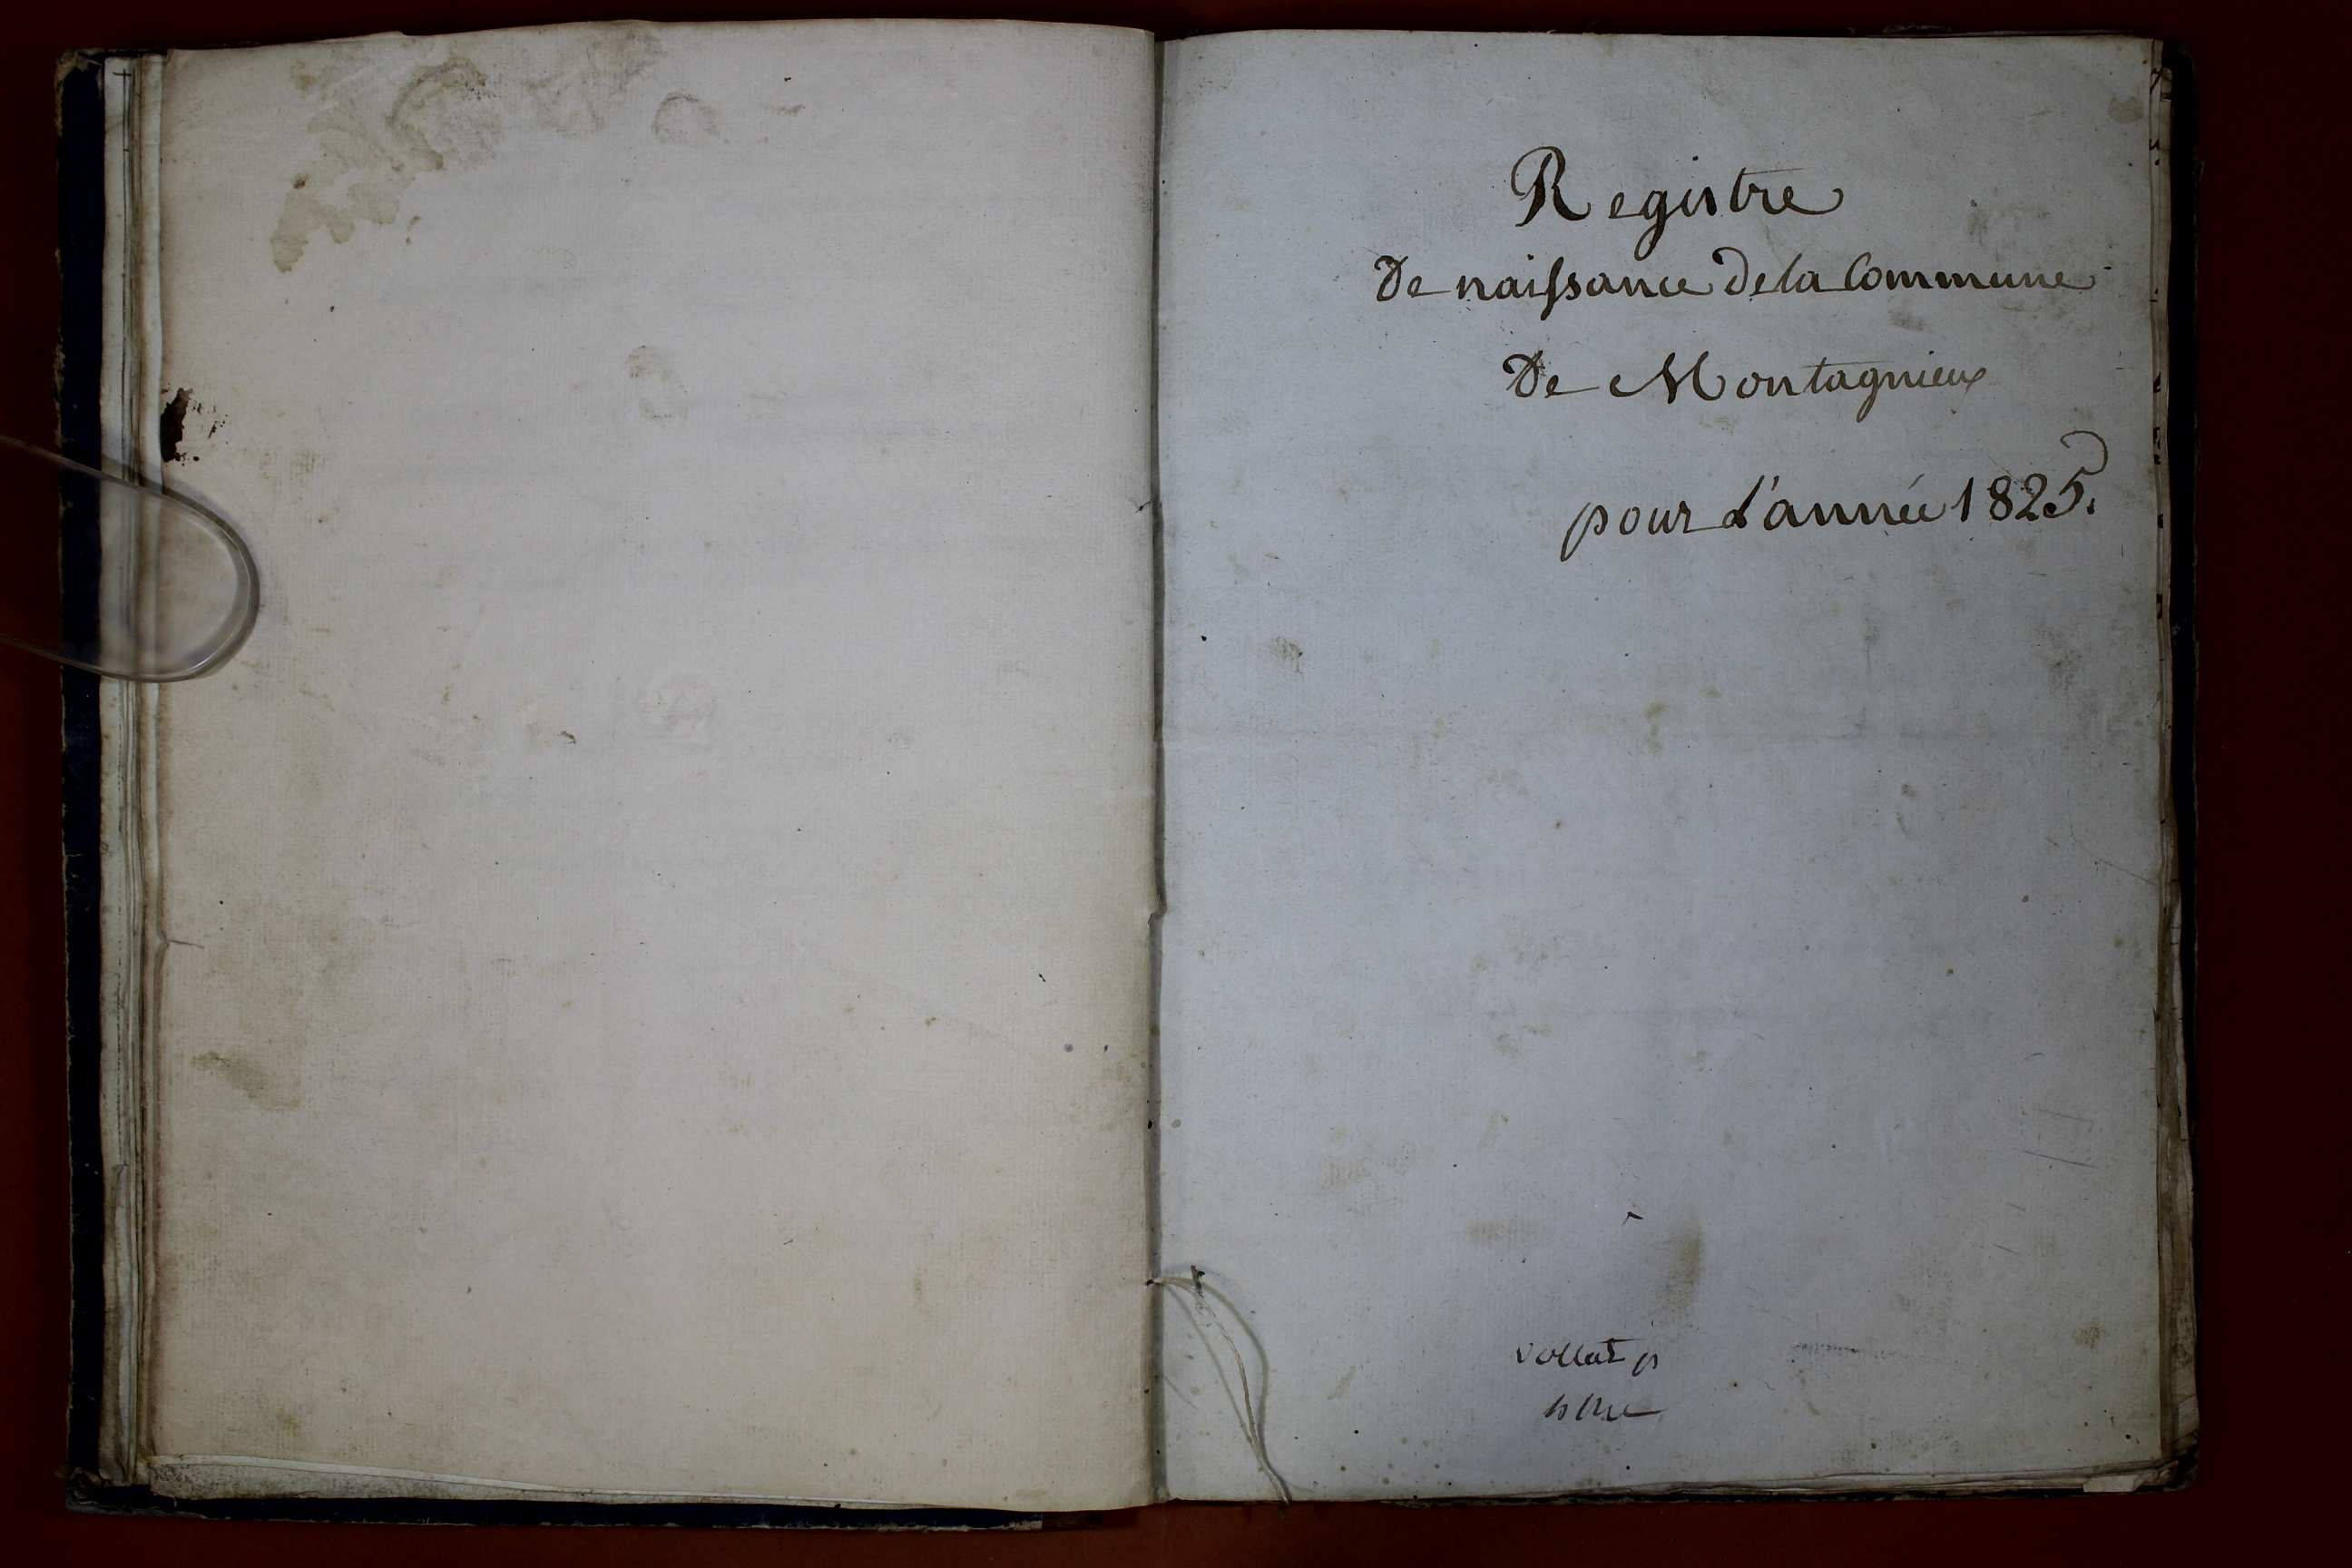 Registre
De naissance de la Commune
De Montagnieux
pour l'année 1825.